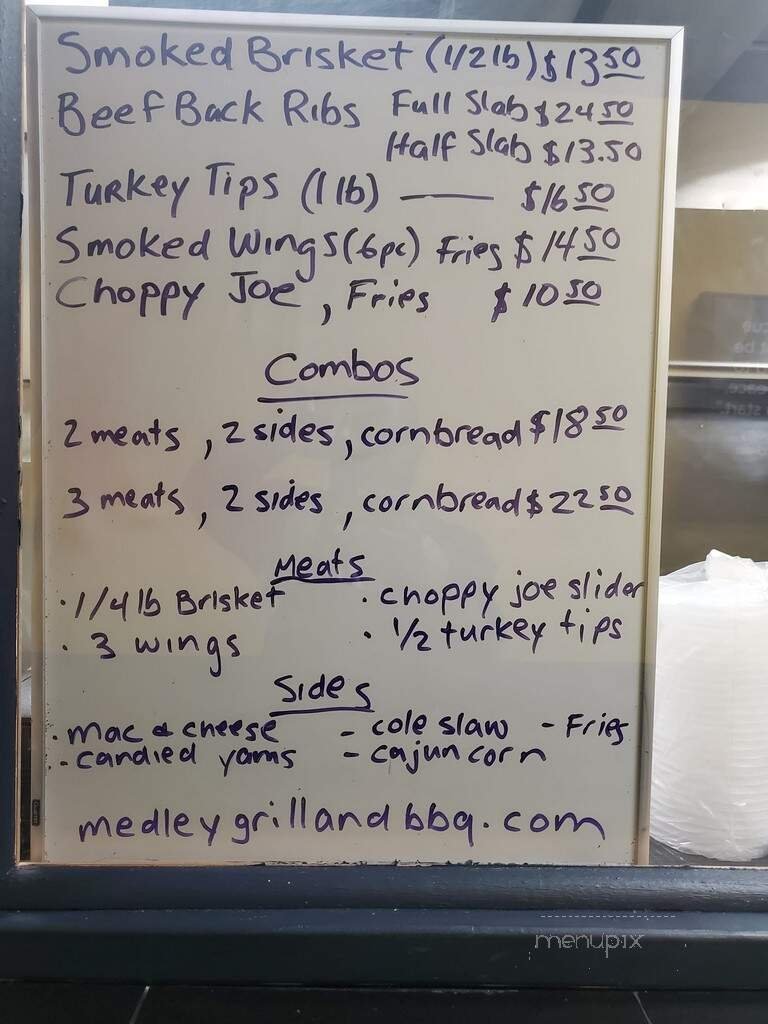 Smoked Brisket (1/2 lb) $13.50
Beef Back Ribs Full Slab $24.50
Half Slab $13.50
Turkey Tips (1 lb) — $16.50
Smoked Wings (6pc) Fries $14.50
Choppy Joe, Fries $10.50
Combos
2 meats, 2 sides, cornbread $18.50
3 meats, 2 sides, cornbread $22.50
Meats
· 1/4 lb Brisket · choppy joe slider
· 3 wings · 1/2 turkey tips
Sides
· mac & cheese - cole slaw - Fries
· candied yams - cajun corn
medleygrillandbbq.com
menupix